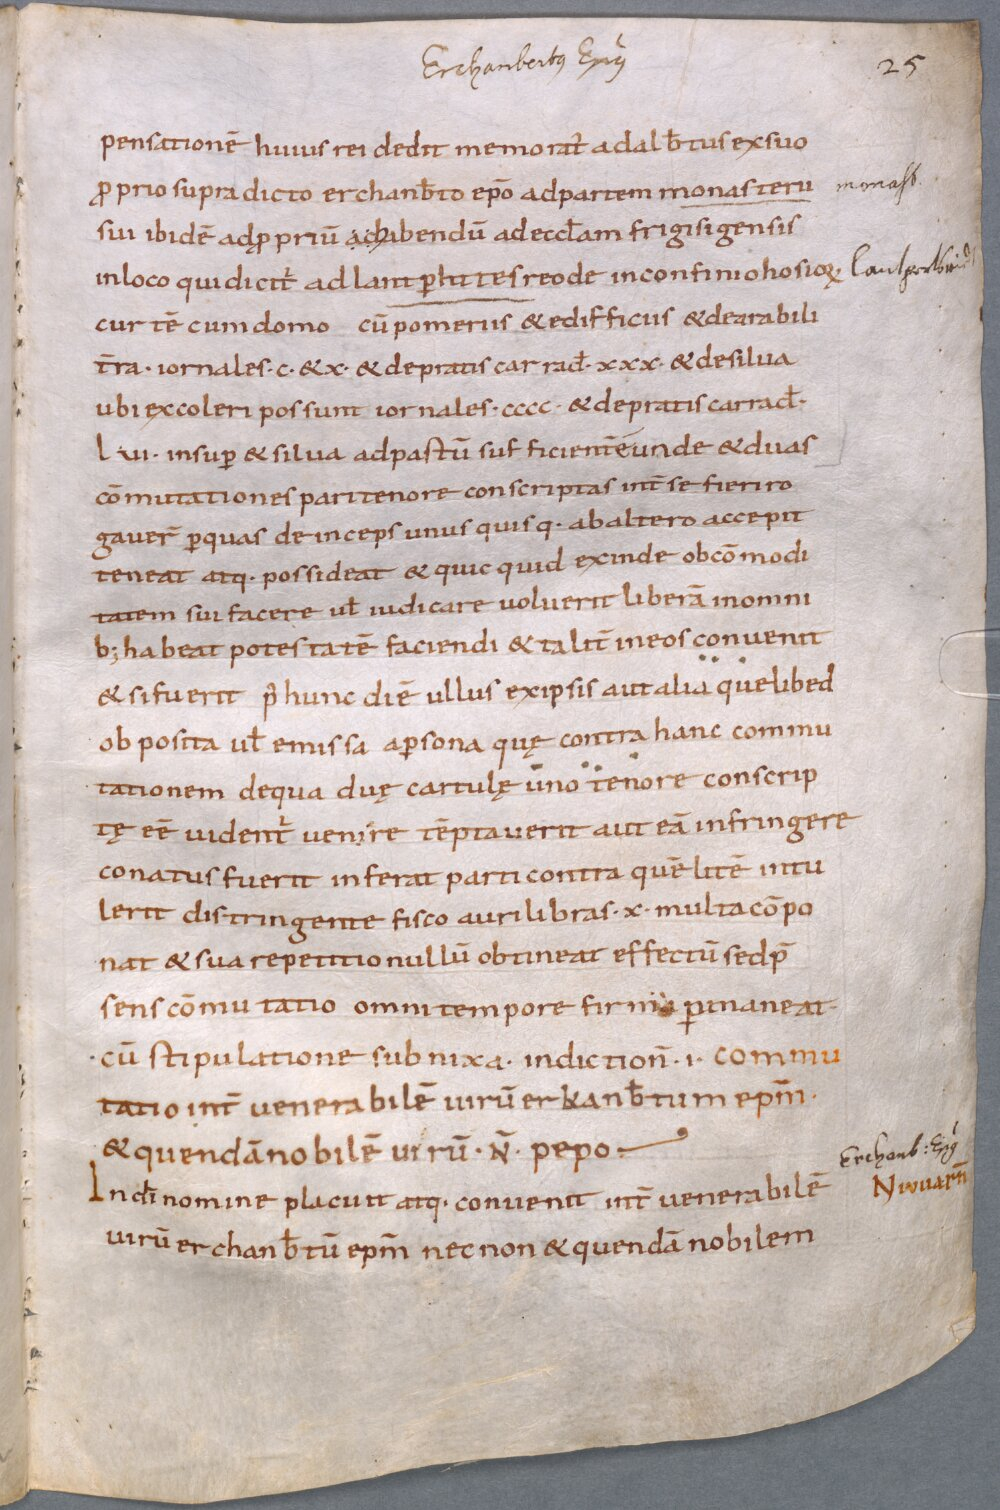 Erchanbertus Epũs
25
pensationẽ huius rei dedit memorat̃ adalb̃tus exsuo
ꝓprio supradicto erchanb̃to ep̃o adpartem monasterii
monast.
sui ibidẽ adꝓpriũ achabendũ adeccl̃am frigisigensis
inloco qui dicit̃ ad lantꝑhtitesreode inconfinio hosioꝝ
curtẽ cumdomo cũ pomeriis &edifficiis &dearabili
t̃ra · iornales · c · &x · &depratis carrad̃ · xxx · &desilua
ubi excoleri possunt iornales · cccc · &depratis carrad̃ ·
lvi · insuꝑ &silua adpastũ sufficientẽ unde &duas
cõmutationes paritenore conscriptas int̃ se fieri ro
gauer̃ ꝑquas deinceps unus quisq · abaltero accepit
teneat atq · possideat &quic quid exinde obcõmodi
tatem sui facere ul̃ iudicare uoluerit liberã inomni
b; habeat potestatẽ faciendi &talit̃ ineos conuenit
&sifuerit p̃ hunc diẽ ullus exipsis aut alia quelibed
obposita ul̃ emissa aꝑsona quę contra hanc commu
tationem dequa duę cartulę uno tenore conscrip
tę eẽ uident̃ venire tẽptauerit aut eã infringere
conatus fuerit inferat parti contra quẽ litẽ intu
lerit distringente fisco auri libras · x · multa cõpo
nat &sua repetitio nullũ obtineat effectũ sedp̃
sens cõmutatio omni tempore firma ꝑmaneat ·
cũ stipulatione subnixa · indiction̄ · i · commu
tatio int̃ venerabilẽ uirũ erkanb̃tum ep̃m ·
&quendã nobilẽ uirũ · N̄ · pepo ·
Erchanb: Epũs
Niwuarñ
Indĩ nomine placuit atq · conuenit int̃ venerabilẽ
uirũ erchanb̃tũ ep̃m necnon &quendã nobilem